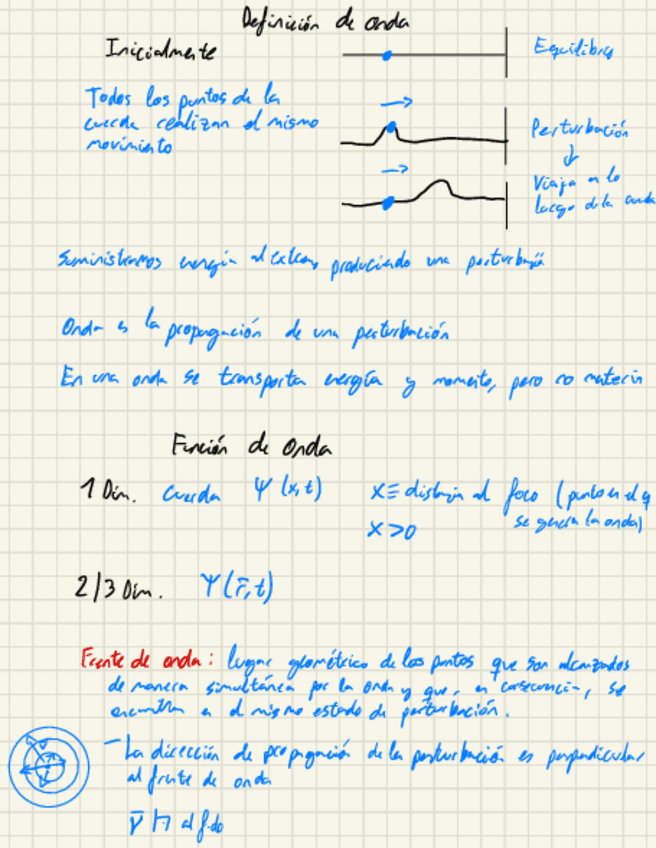 Definición de onda
Inicialmente
Equilibrio
Todos los puntos de la
cuerda realizan el mismo
movimiento
Perturbación
↓
Viaja a lo
largo de la cuerda
Suministramos energía al produciendo una perturbación
Onda es la propagación de una perturbación
En una onda se transporta energía y momento, pero no materia
Función de Onda
1 Dim. Cuerda Ψ (x,t) x ≡ distancia al foco (punto en el q
se genera la onda)
x > 0
2/3 Dim. Ψ(r̄,t)
Frente de onda: lugar geométrico de los puntos que son alcanzados
de manera simultánea por la onda y que, en consecuencia, se
encuentran en el mismo estado de perturbación.
- La dirección de propagación de la perturbación es perpendicular
al frente de onda
v̄ al f.do